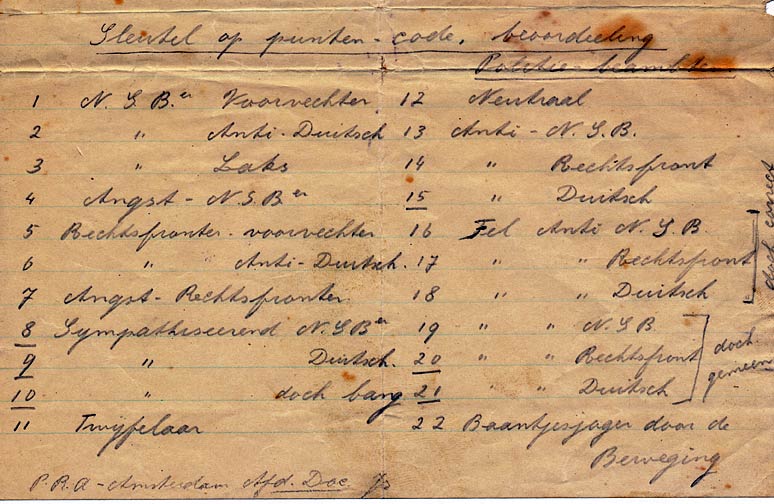 Sleutel op punten-code, beoordeeling
Politie-beambten
1 N.S.B.er Voorvechter
2 " Anti-Duitsch
3 " Laks
4 Angst-N.S.B.er
5 Rechtsfronter-voorvechter
6 " Anti-Duitsch.
7 Angst-Rechtsfronter.
8 Sympathiseerend N.S.B.er
9 " Duitsch.
10 " doch bang
11 Twyfelaar
12 Neutraal
13 Anti-N.S.B.
14 " Rechtsfront
15 " Duitsch
16 Fel Anti N.S.B.
17 " " Rechtsfront
18 " " Duitsch
doch correct
19 " " N.S.B.
20 " " Rechtsfront
21 " Duitsch
doch
gemeen
22 Baantjesjager door de
Beweging
P.R.A-Amsterdam Afd. Doc.